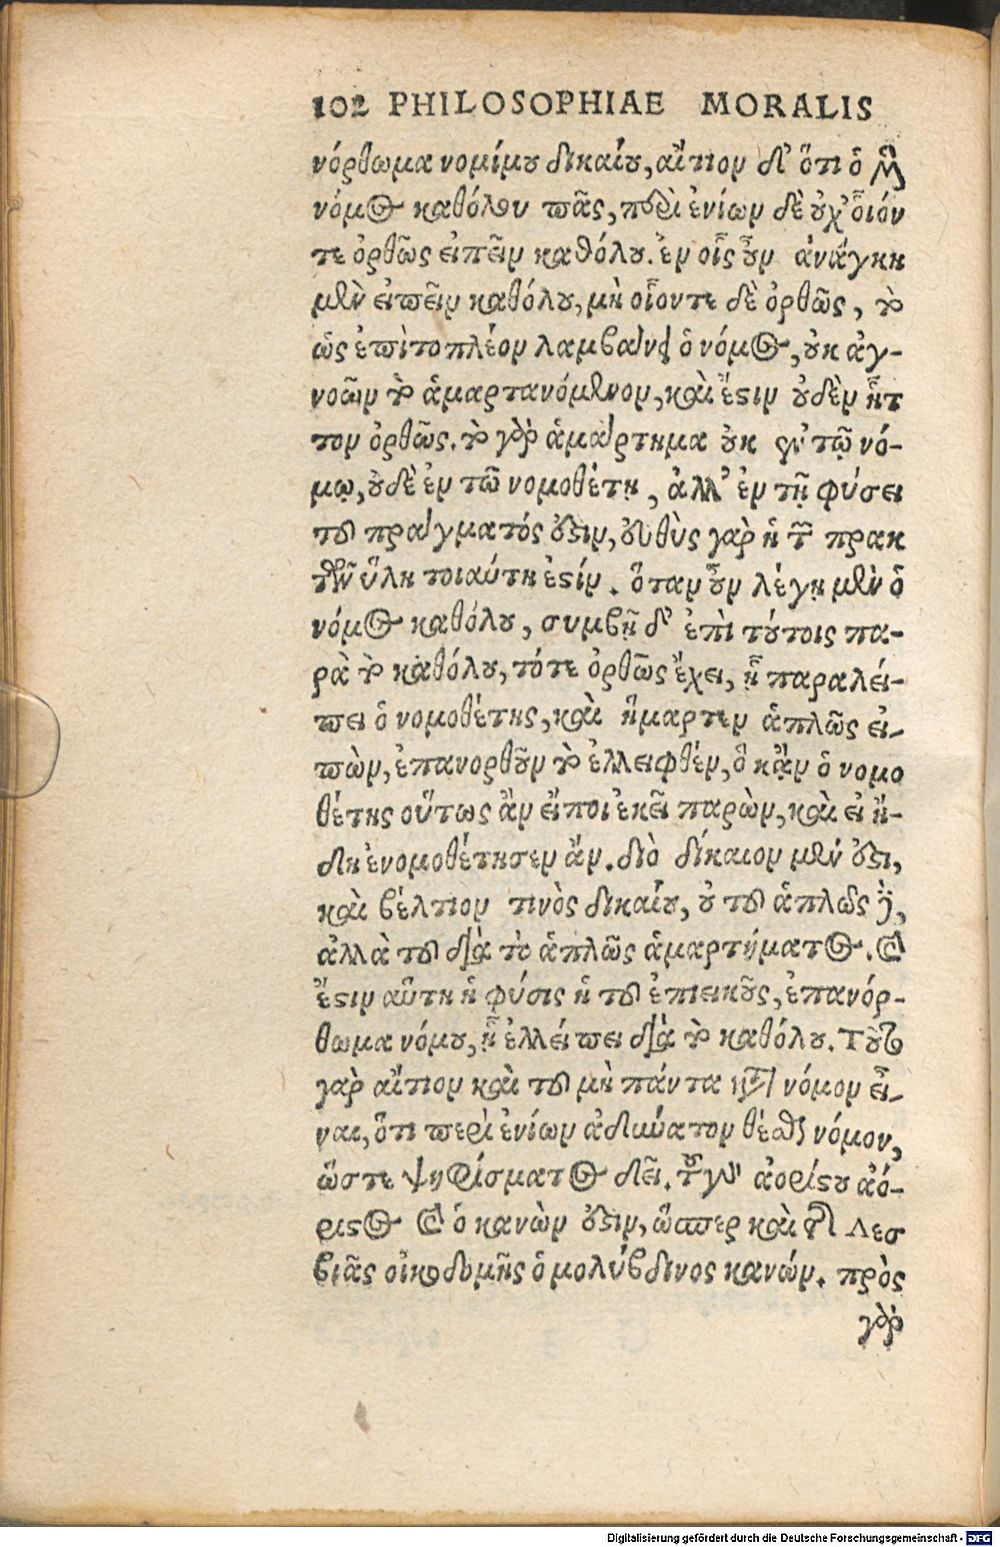 102 PHILOSOPHIAE MORALIS
νόρθωμα νομίμου δικαίου, αἴτιον δ' ὅτι ὁ μὲν
νόμος καθόλου πᾶς, περὶ ἐνίων δὲ οὐχ οἷόν
τε ὀρθῶς εἰπεῖν καθόλου. ἐν οἷς οὖν ἀνάγκη
μὲν εἰπεῖν καθόλου, μὴ οἷόντε δὲ ὀρθῶς, τὸ
ὡς ἐπὶτοπλέον λαμβάνει ὁ νόμος, οὐκ ἀγ-
νοῶν τὸ ἁμαρτανόμενον, καὶ ἔστιν οὐδὲν ἧτ
τον ὀρθῶς. τὸ γὰρ ἁμάρτημα οὐκ ἐν τῷ νό-
μῳ, οὐδὲ ἐν τῶ νομοθέτῃ, ἀλλ' ἐν τῇ φύσει
τοῦ πράγματός ἐστιν, εὐθὺς γαρ ἡ τῶν πρακ
τῶν ὕλη τοιαύτη ἐστίν. ὅταν οὖν λέγῃ μὲν ὁ
νόμος καθόλου, συμβῇ δ' ἐπὶ τούτοις πα-
ρὰ τὸ καθόλου, τότε ὀρθῶς ἔχει, ᾗ παραλεί-
πει ὁ νομοθέτης, καὶ ἥμαρτεν ἁπλῶς εἰ-
πὼν, ἐπανορθοῦν τὸ ἐλλειφθέν, ὃ κἂν ὁ νομο
θέτης οὕτως ἂν εἴποι ἐκεῖ παρὼν, καὶ εἰ ἤ-
δη ἐνομοθέτησεν ἄν. διὸ δίκαιον μέν ἐστι,
καὶ βέλτιον τινὸς δικαίου, οὐ τοῦ ἁπλῶς δὲ,
ἀλλὰ τοῦ διὰ τὸ ἁπλῶς ἁμαρτήματος. καὶ
ἔστιν αὕτη ἡ φύσις ἡ τοῦ ἐπιεικοῦς, ἐπανόρ-
θωμα νόμου, ᾗ ἐλλείπει διὰ τὸ καθόλου. Τοῦτο
γὰρ αἴτιον καὶ τοῦ μὴ πάντα κατὰ νόμον εἶ-
ναι, ὅτι περὶ ἐνίων ἀδύνατον θέσθαι νόμον,
ὥστε ψηφίσματος δεῖ. τοῦ γὰρ ἀορίστου ἀό-
ριστος καὶ ὁ κανὼν ἐστιν, ὥσπερ καὶ τῆς Λεσ
βιᾶς οἰκοδομῆς ὁ μολύβδινος κανών. πρὸς
γὰρ
Digitalisierung gefördert durch die Deutsche Forschungsgemeinschaft - DFG